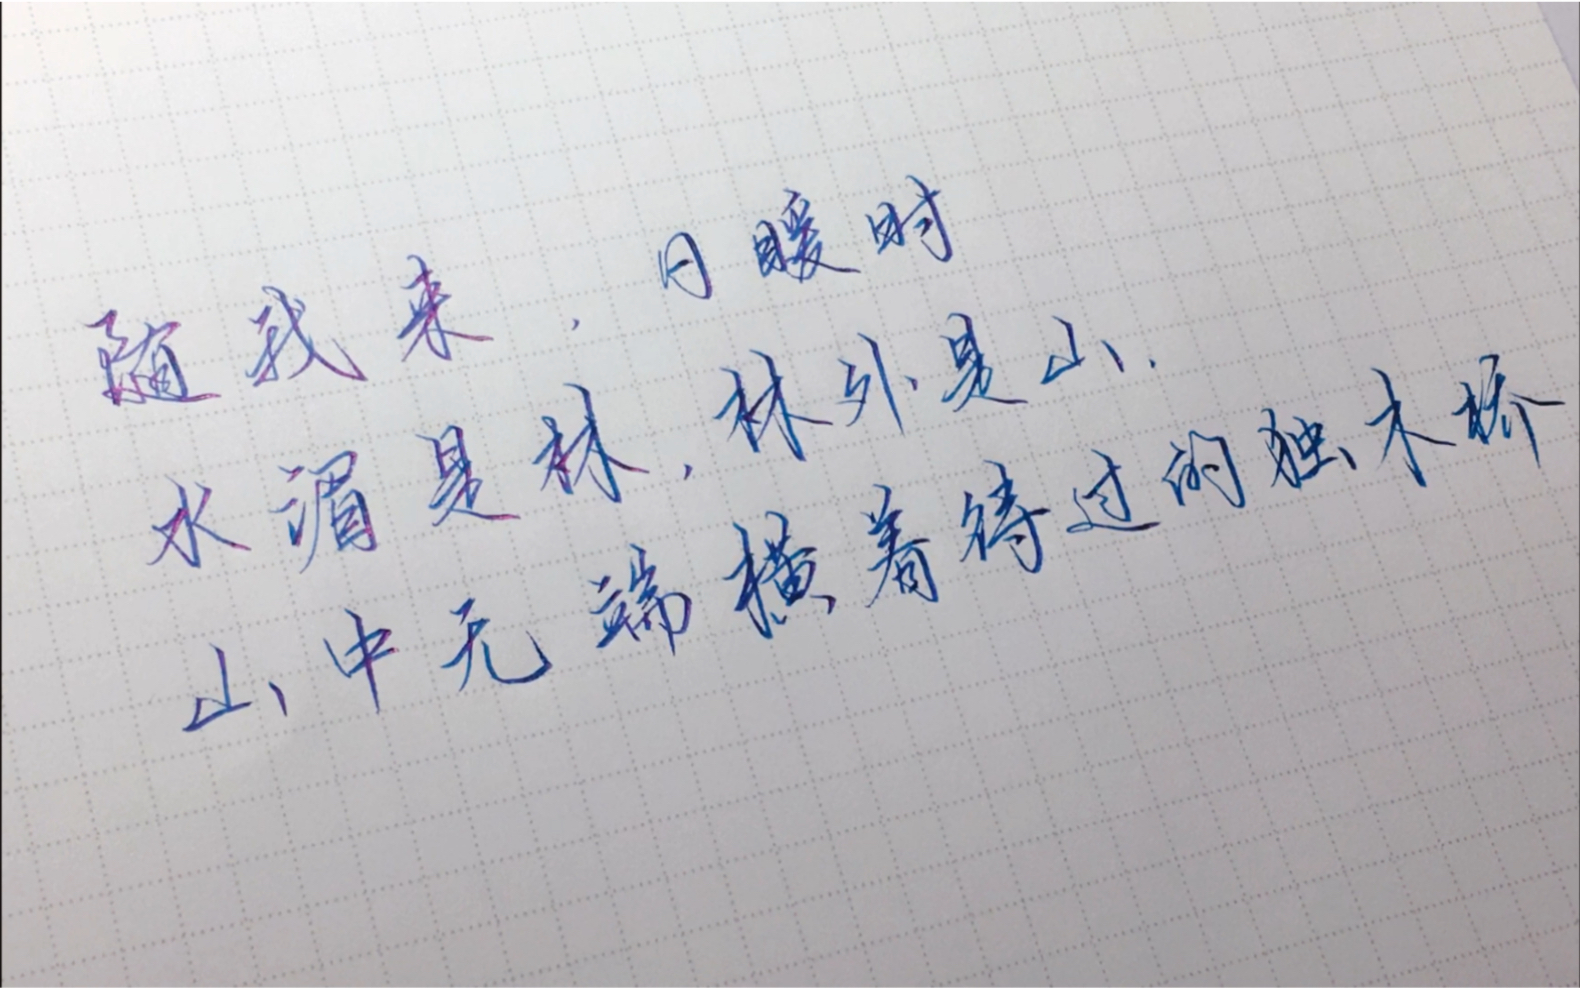 随我来，日暖时
水湄是林，林外是山.
山中无端横着待过的独木桥